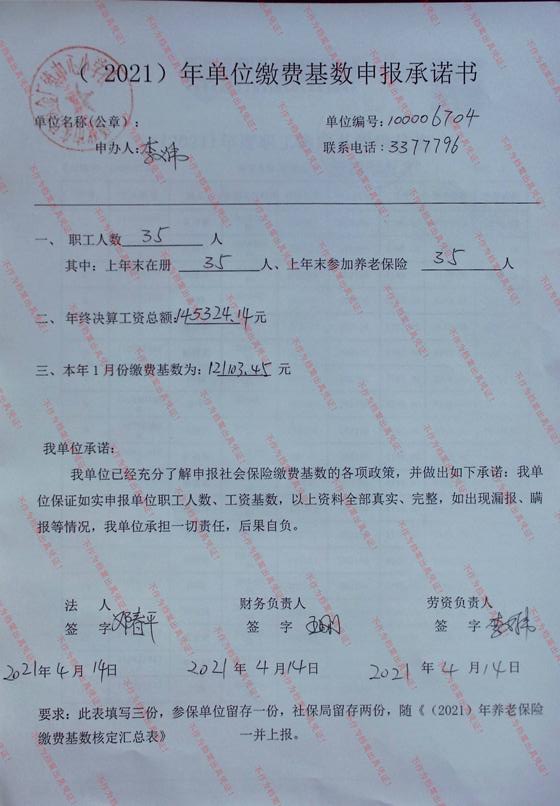 （2021）年单位缴费基数申报承诺书
单位名称(公章)： 单位编号:100006704
申办人: 联系电话:3377796
一、 职工人数 35 人
其中：上年末在册 35 人、上年末参加养老保险 35 人
二、年终决算工资总额:145324.14元
三、本年1月份缴费基数为:12103.45 元
我单位承诺:
我单位已经充分了解申报社会保险缴费基数的各项政策，并做出如下承诺：我单
位保证如实申报单位职工人数、工资基数，以上资料全部真实、完整，如出现漏报、瞒
报等情况，我单位承担一切责任，后果自负。
法 人 财务负责人 劳资负责人
签 字 邓春平 签 字 签 字
2021年4月14日 2021年4月14日 2021年4月14日
要求：此表填写三份，参保单位留存一份，社保局留存两份，随《（2021）年养老保险
缴费基数核定汇总表》 一并上报。